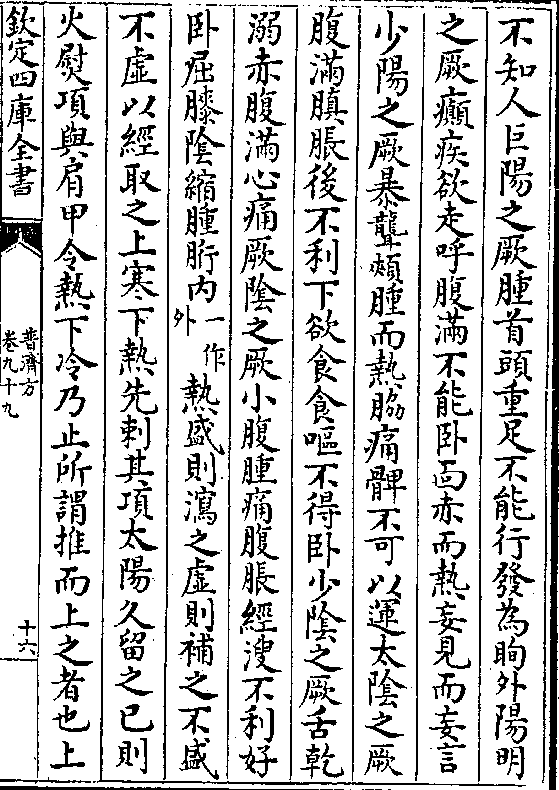 不知人巨陽之厥腫首頭重足不能行發為眴外陽明
之厥癲疾欲走呼腹滿不能卧面赤而熱妄見而妄言
少陽之厥暴聾頰腫而熱脇痛髀不可以運太陰之厥
腹滿䐜脹後不利下欲食食嘔不得卧少陰之厥舌乾
溺赤腹滿心痛厥陰之厥小腹腫痛腹脹經溲不利好
卧屈膝陰縮腫胻内一作外熱盛則瀉之虚則補之不盛
不虚以經取之上寒下熱先刺其項太陽久留之已則
火熨項與肩甲令熱下冷乃止所謂推而上之者也上
欽定四庫全書
普濟方
卷九十九
十六